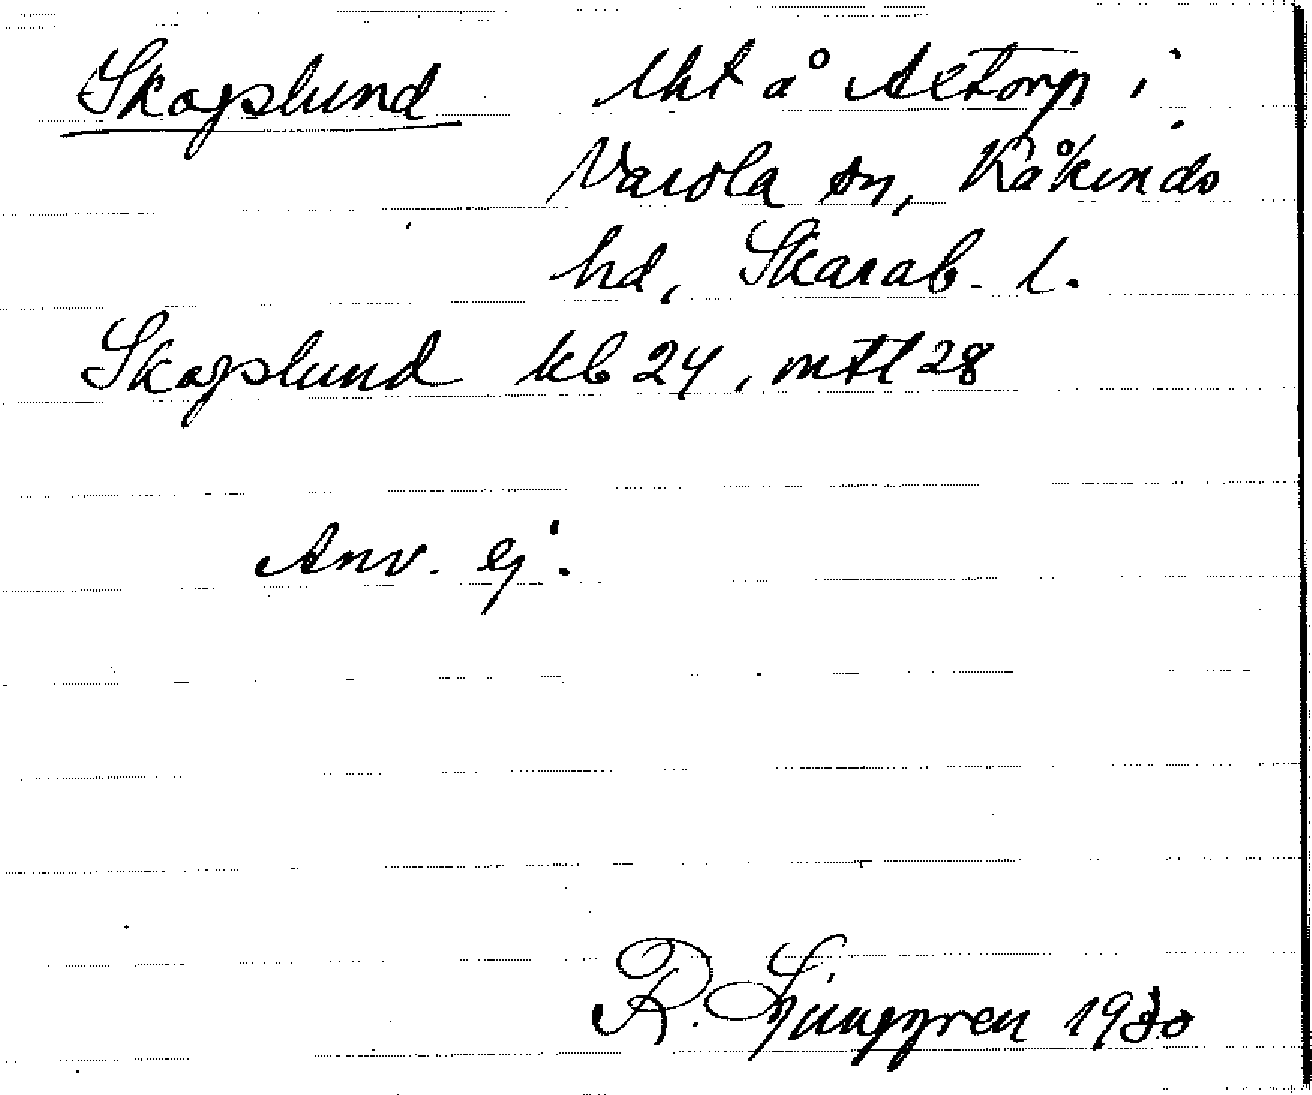 Skogslund lht å Aetorp i
Varola sn, Kåkinds
hd, Skarab. l.
Skogslund kb 24, mtl 28
Anv. ej.
R. Ljunggren 1930